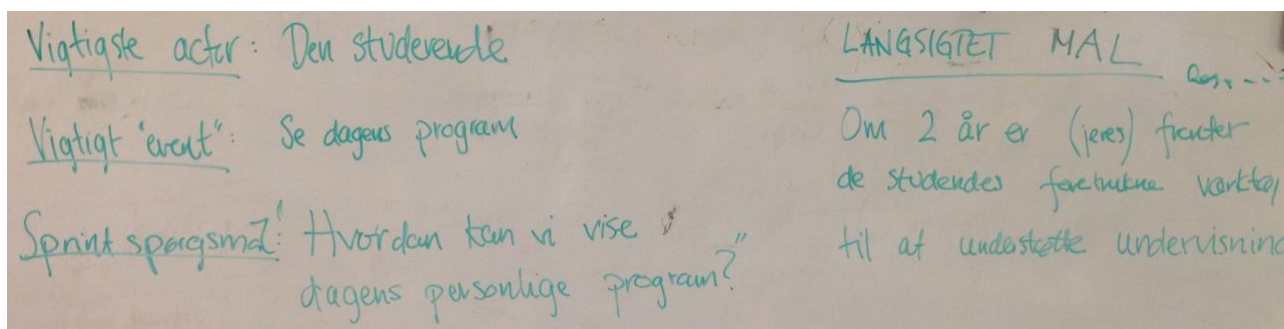 Vigtigste actor: Den studerende
Vigtigt "event": Se dagens program
Sprint spørgsmål: Hvordan kan vi vise
dagens personlige program?"
LANGSIGTET MAL
Om 2 år er (jeres) fronter
de studendes foretrukne værktøj
til af understøtte undervisning